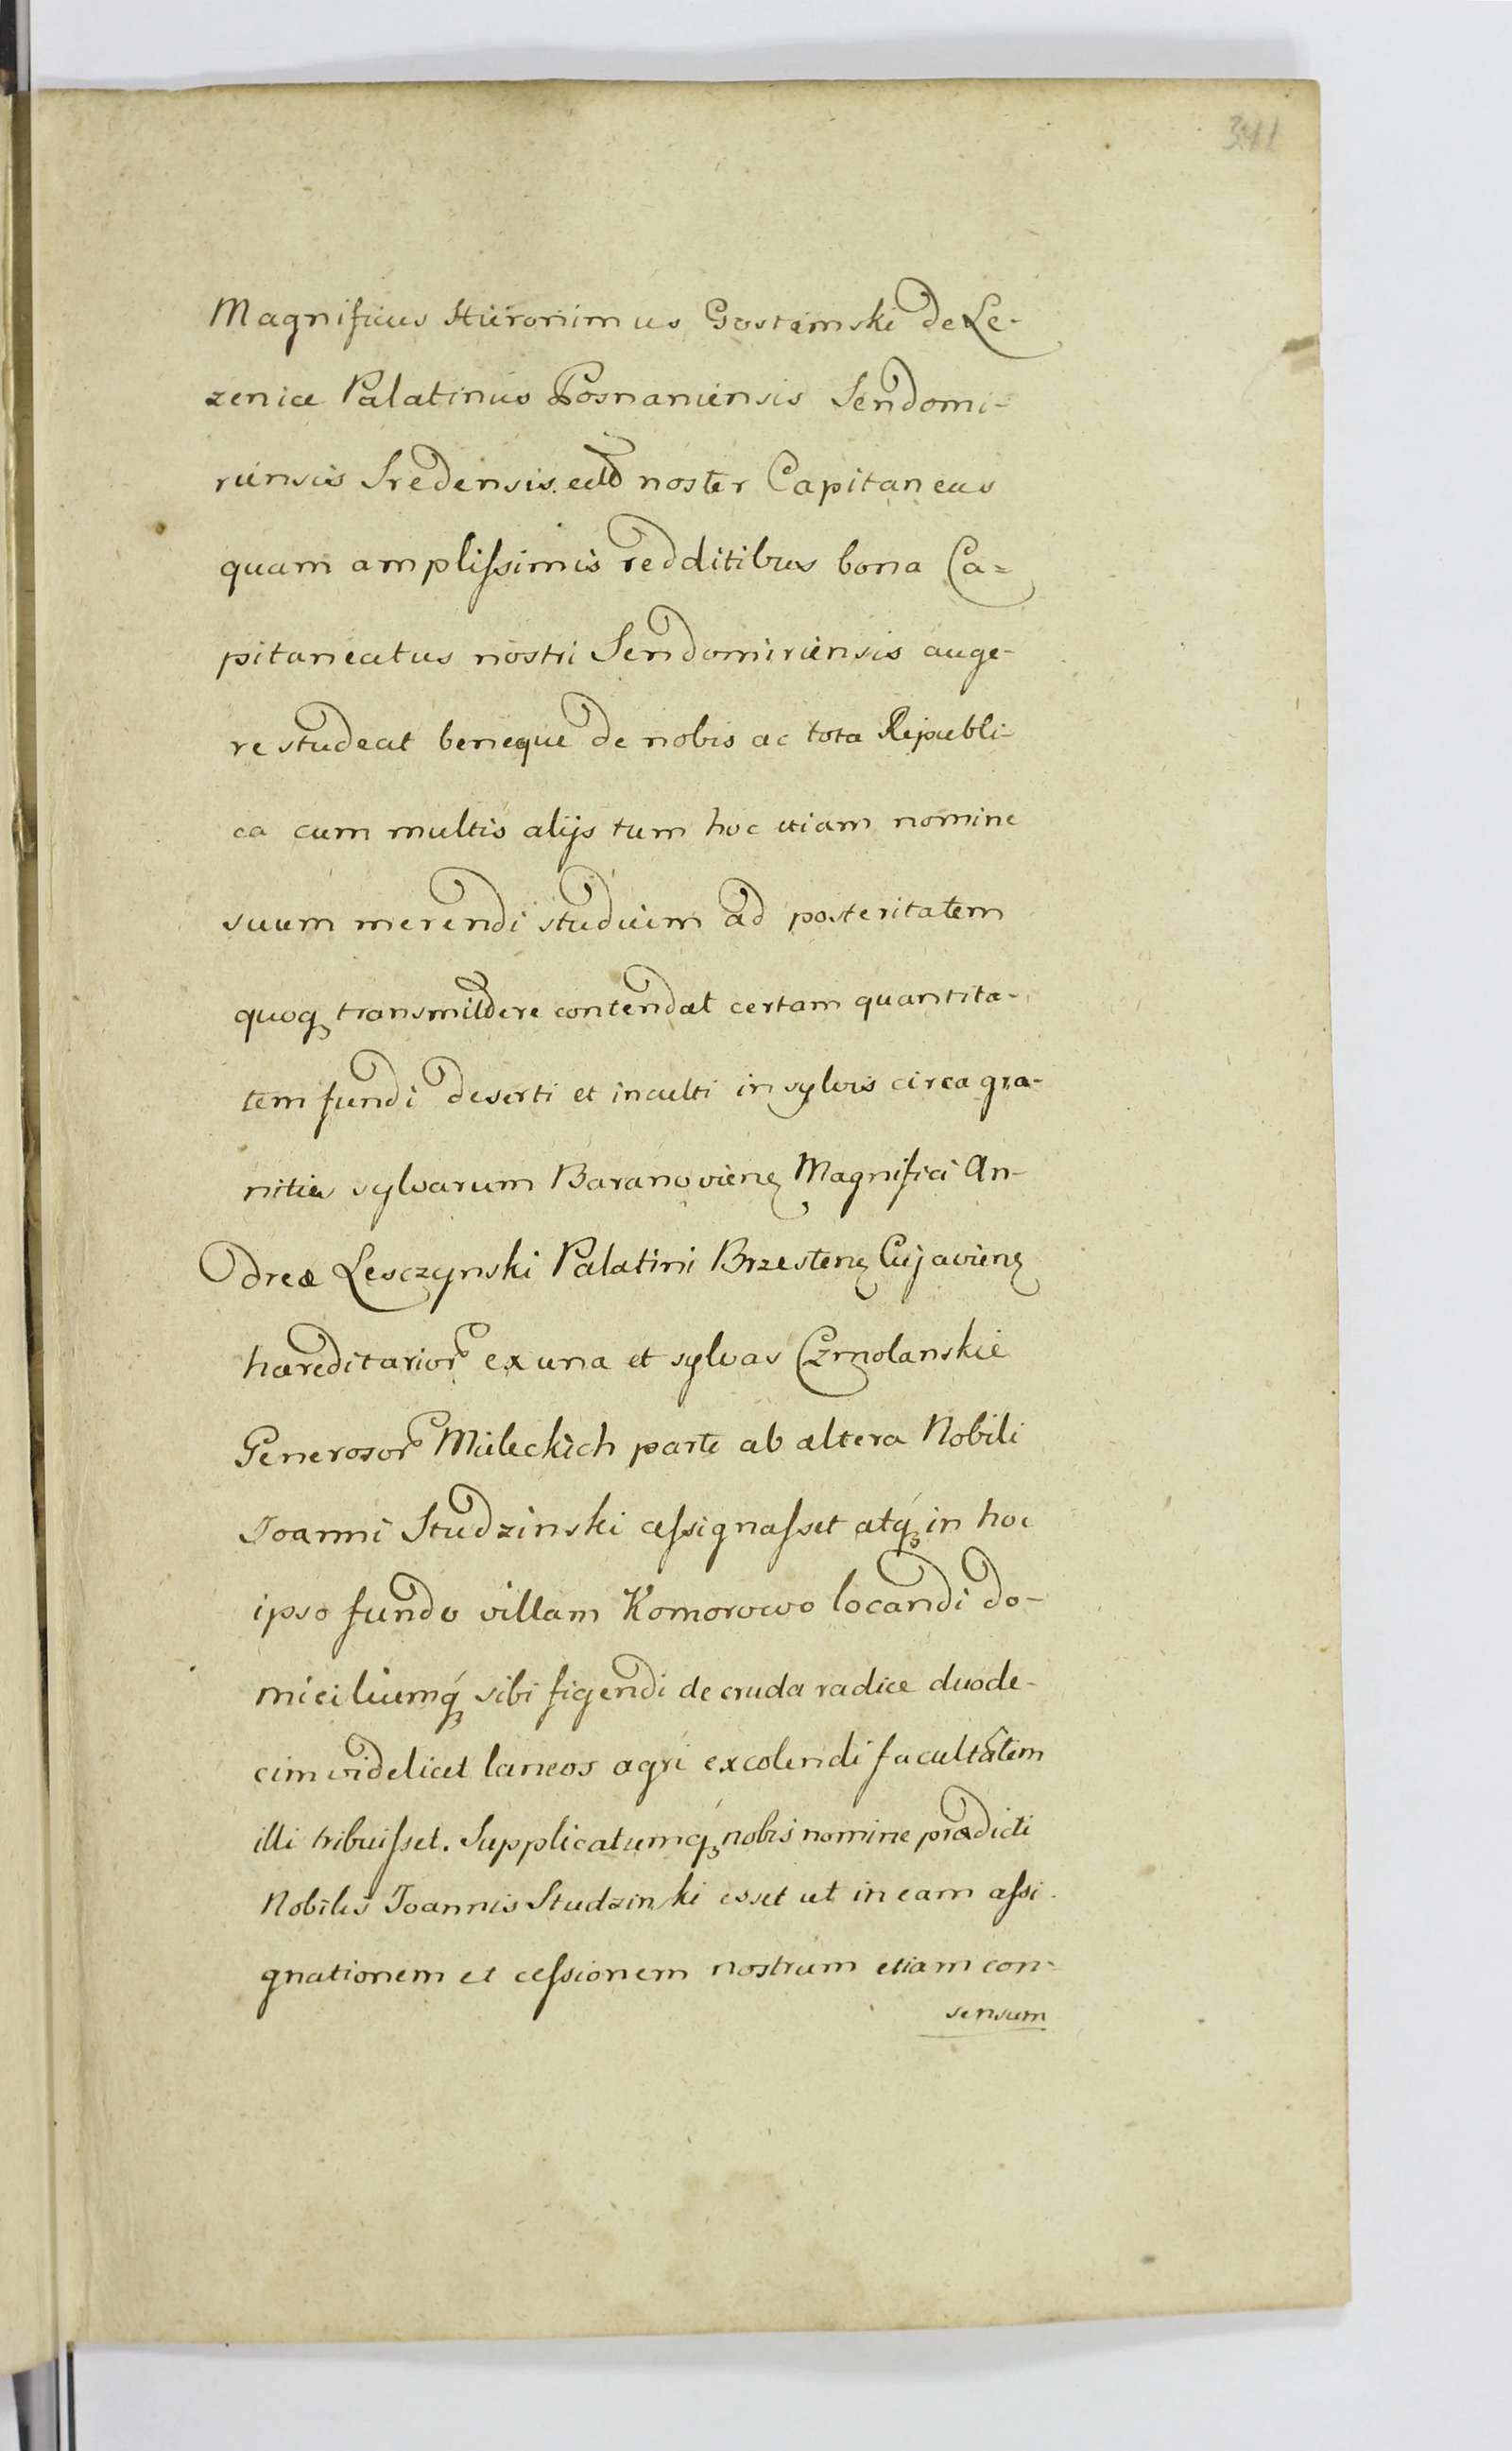 341
Magnificus Hieronimus Gostimski de Le-
zenice Palatinus Posnaniensis Sendomi-
riensis Sredensis. noster Capitaneus
quam amplissimis redditibus bona Ca=
pitaneatus nostri Sendomiriensis auge-
re studeat beneque de nobis ac tota Republi-
ca cum multis alijs tum hoc etiam nomine
suum merendi studium ad posteritatem
quoq transmittere contendat certam quantita-
tem fundi deserti et inculti in sylvis circa gra-
nities sylvarum Baranovieng Magnifici An-
dreæ Lesczynski Palatini Brzesteng Cujavieng
hæreditarior ex una et sylvas Czrnolanskie
Generosor Mieleckich parte ab altera Nobili
Joanni Studzinski assignasset atq in hoc
ipso fundo villam Komorowo locandi do-
miciliumq sibi figendi de cruda radice duode-
cim videlicet laneos agri excolendi facultatem
illi tribuisset. Supplicatumq nobis nomine prædicti
Nobilis Joannis Studzinski esset ut in eam assi-
gnationem et cessionem nostrum etiam con-
sensum